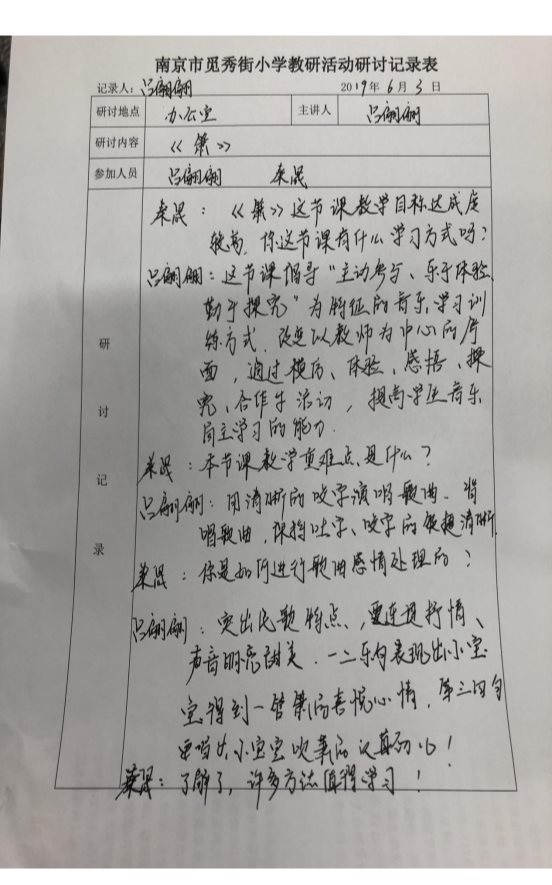 南京市觅秀街小学教研活动研讨记录表
记录人：吕翩翩 2019年 6月 3日
研讨地点 办公室 主讲人 吕翩翩
研讨内容 《箫》
参加人员 吕翩翩 晟
研讨记录
晟：《箫》这节课教学目标达成度
较高，你这节课有什么学习方式吗？
吕翩翩：这节课倡导“主动参与、乐于体验、
勤于探究”为特征的音乐学习训
练方式，改变以教师为中心的局
面，通过模仿、体验、感悟、探
究、合作等活动，提高学生音乐
自主学习的能力.
晟：本节课教学重难点是什么？
吕翩翩：用清晰的咬字演唱歌曲、背
唱歌曲，保持吐字、咬字的清晰.
晟：你是如何进行歌曲感情处理的？
吕翩翩：突出民歌特点，要连贯抒情、
声音明亮甜美.一二乐句表现出小宝
宝得到一管箫的喜悦心情，第三四句
要唱出小宝宝吹箫的认真劲儿！
晟：了解了，许多方法值得学习！